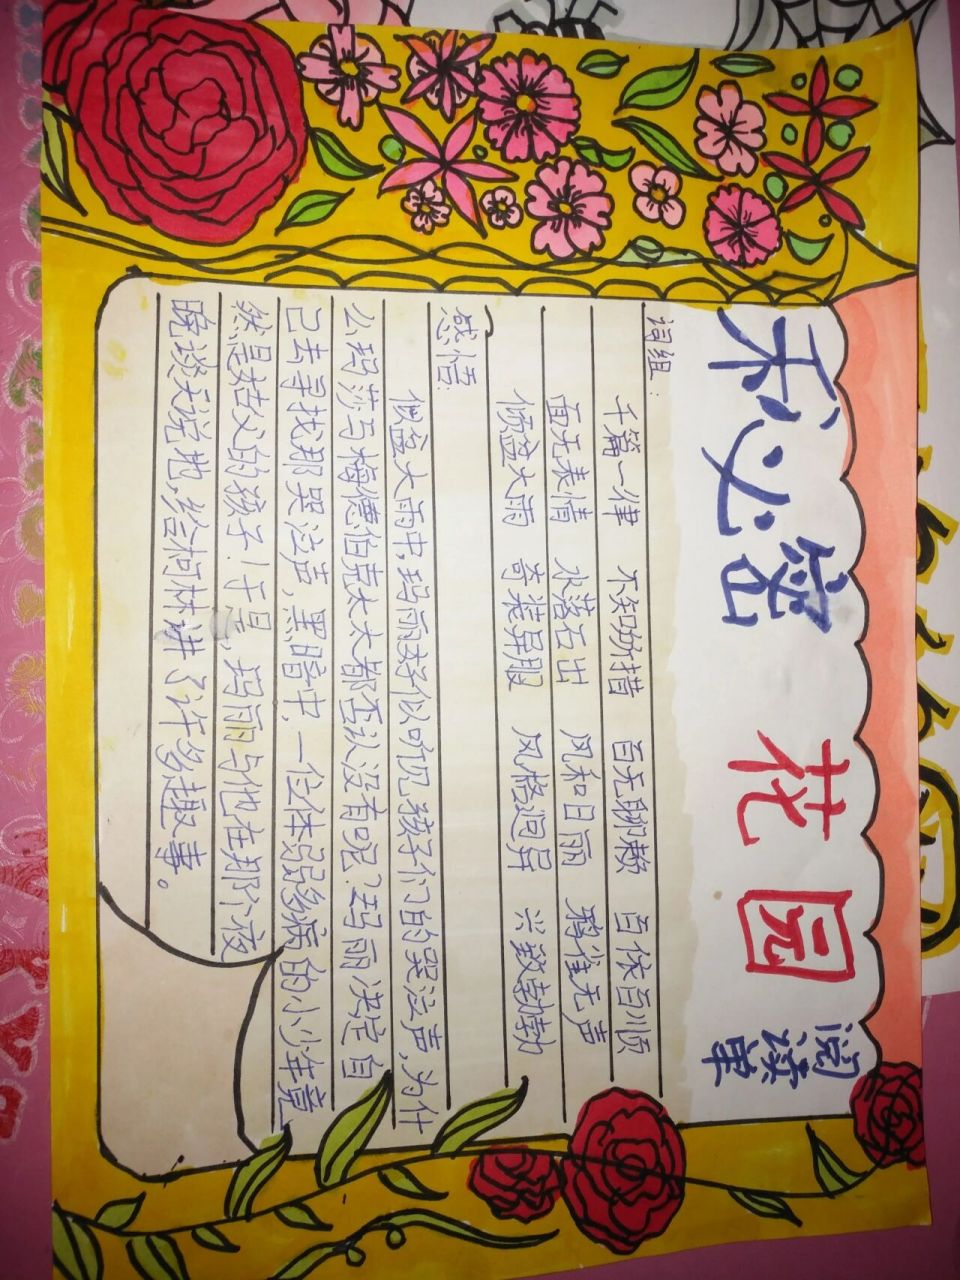 秘密花园
阅读单
词组:
千篇一律 不知所措 百无聊赖 百依百顺
面无表情 水落石出 风和日丽 鸦雀无声
倾盆大雨 奇装异服 风格迥异 兴致勃勃
感悟:
倾盆大雨中,玛丽好似听见孩子们的哭泣声,为什
么玛莎马梅德伯克太太都否认没有呢?玛丽决定自
己去寻找那哭泣声,黑暗中,一位体弱多病的小少年竟
然是姑父的孩子!于是,玛丽与他在那个夜
晚谈天说地,给柯林讲了许多趣事。